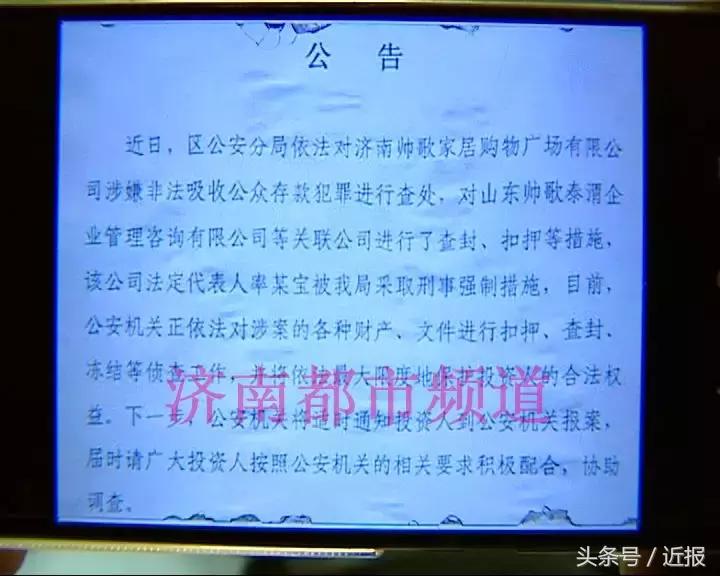 公 告
近日，区公安分局依法对济南帅歌家居购物广场有限公
司涉嫌非法吸收公众存款犯罪进行查处，对山东帅歌泰渭企
业管理咨询有限公司等关联公司进行了查封、扣押等措施，
该公司法定代表人率某宝被我局采取刑事强制措施，目前，
公安机关正依法对涉案的各种财产、文件进行扣押、查封、
冻结等侦查工作，并将依 大限度地 投资 的合法权
济南都市频道
益。下一步，公安机关将适时通知投资人到公安机关报案，
届时请广大投资人按照公安机关的相关要求积极配合，协助
调查。
头条号 / 近报